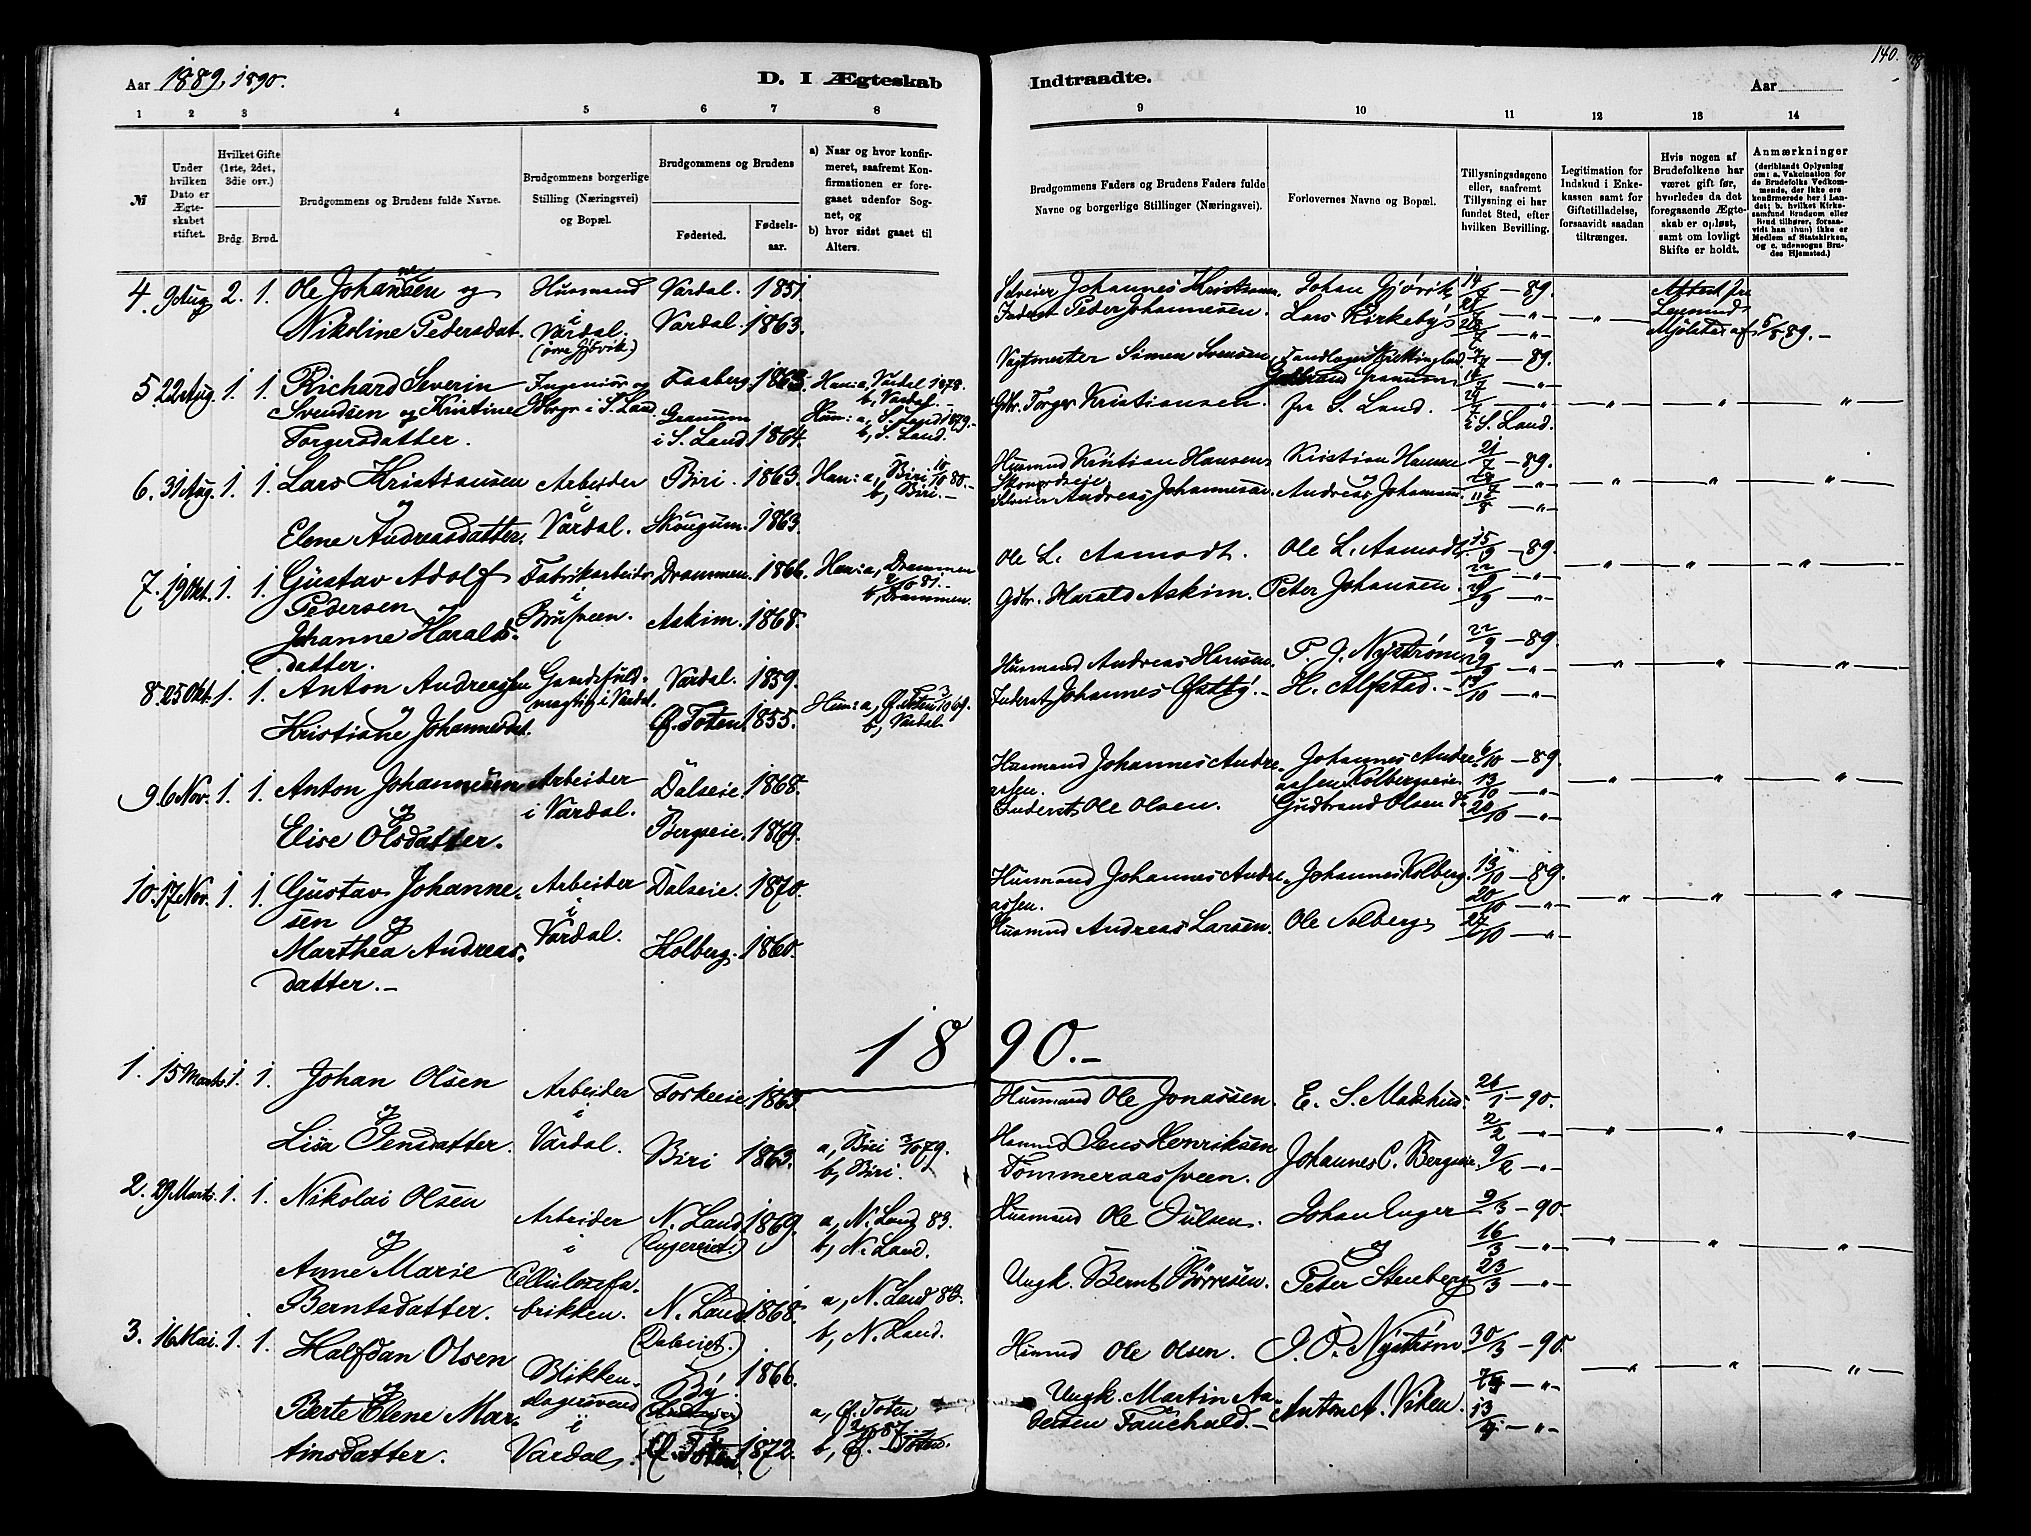 Aar 1889, 1890.
D. I Ægteskab
Indtraadte.
Aar
140.
1 2 3 4 5 6 7 8
9 10 11 12 13 14
№
Under hvilken Dato er Ægteskabet stiftet.
Hvilket Gifte (1ste, 2det, 3die osv.)
Brdg. Brud.
Brudgommens og Brudens fulde Navne.
Brudgommens borgerlige Stilling (Næringsvei) og Bopæl.
Brudgommens og Brudens
Fødested. Fødselsaar.
a) Naar og hvor konfirmeret, saafremt Konfirmationen er foregaaet udenfor Sognet, og
b) hvor sidst gaaet til Alters.
Brudgommens Faders og Brudens Faders fulde Navne og borgerlige Stillinger (Næringsvei).
Forlovernes Navne og Bopæl.
Tillysningsdagene eller, saafremt Tillysning ei har fundet Sted, efter hvilken Bevilling.
Legitimation for Indskud i Enkekassen samt for Giftetilladelse, forsaavidt saadan tiltrænges.
Hvis nogen af Brudefolkene har været gift før, hvorledes da det foregaaende Ægteskab er opløst, samt om lovligt Skifte er holdt.
Anmærkninger (deriblandt Oplysning om: a. Vakcination for de Brudefolks Vedkommende, der ikke ere konfirmerede her i Landet; b. hvilket Kirkesamfund Brudgom eller Brud tilhører, forsaavidt han (hun) ikke er Medlem af Statskirken, og c. udensogns Brudes Hjemsted.)
4. 9 Aug. 2. 1. Ole Johansen og Husmand Vardal. 1851
Nikoline Pedersdat. i Vardal. Vardal. 1863.
(øvre Gjøvik)
Selveier Johannes Kristiansen Johan Gjøvik 14/7 – 89.
Inderst Peder Johannesen. Lars Kirkeby 21/7 – „ –
28/7 – „ –
Attest fra
Lensmand
Mjølstad af 5/8 89. –
5. 22 Aug. 1. 1. Richard Severin Ingeniør og Faaberg. 1863. Han: a, Vardal 1878.
Svendsen og Kristine Gbbr. i S. Land. b, Vardal.
Torgersdatter. Granum i S. Land. 1864. Hun: a, S. Land 1879. –
b, S. Land.
Vagtmester Simen Svensen Tandlæge Skikkingstad 7/7 – 89.
Gdbr. Torger Kristiansen. Gulbrand Granum 14/7 – „ –
fra S. Land. 21/7 – „ –
i S. Land.
6. 31 Aug. 1. 1. Lars Kristiansen Arbeider Biri. 1863. Han: a, Biri 10/10 80. –
og i b, Biri. –
Elene Andreasdatter. Vardal. Skougum. 1863.
Husmnd Kristian Hansen Kristian Hansen 21/7 – 89.
Skougodseie
Selveier Andreas Johannesen. Andreas Johannesen 28/7 – „ –
11/8 – „ –
7. 19 Okt. 1. 1. Gustav Adolf Fabrikarbeider Drammen. 1866. Han: a, Drammen
Pedersen og i 2/10 81. –
Johanne Haralds- Brusveen. Askim. 1868. b, Drammen.
datter.
Ole L. Aamodt. Ole L. Aamodt 15/9 – 89.
Gdbr. Harald Askim. Peter Johansen. 22/9 – „ –
29/9 – „ –
8. 25 Okt. 1. 1. Anton Andreassen Gaardsfuld- Vardal. 1859.
og mægtig i Vardal.
Kristiane Johannesdat. Ø. Toten. 1855. Hun: a, Ø. Toten 3/10 69.
b, Vardal.
Husmand Andreas Hansen. P. J. Nystrøm 22/9 – 89.
Inderst Johannes Østby. – H. Alfstad. – 29/9 – „ –
13/10 – „ –
9. 6 Nov. 1. 1. Anton Johannesen Arbeider Dalseie. 1868.
og i Vardal.
Elise Olsdatter. Bergseie. 1869.
Husmand Johannes Andre- Johannes Andre- 6/10 – 89.
assen. assen Kolbergseie 13/10 – „ –
Inderst Ole Olsen. Gudbrand Olsen 20/10 – „ –
10. 17 Nov. 1. 1. Gustav Johanne- Arbeider Dalseie. 1870.
sen og i
Marthea Andreas- Vardal. Kolberg. 1860.
datter. –
Husmand Johannes Andre- Johannes Kolberg. 13/10 – 89.
assen. 20/10 – „ –
Husmnd Andreas Larsen. Ole Aalberg 27/10 – „ –
1890. –
1. 15 Marts. 1. 1. Johan Olsen Arbeider Torkeeie 1863
og i
Lisa Jensdatter. Vardal. Biri 1863. a, Biri 3/10 79.
b, Biri.
Husmand Ole Jonassen. E. S. Madshus. 26/1 – 90.
Husmnd Jens Henriksen 2/2 – „ –
Tømmeraassveen. Johannes C. Bergseie. 9/2 – „ –
2. 29 Marts. 1. 1. Nikolai Olsen Arbeider N. Land 1869. a, N. Land 83.
og i (Engereiet.) b, N. Land.
Anne Marie Cellulosefa-
Berntsdatter. brikken. N. Land 1868. a, N. Land 83.
(Dalseiet.) b, N. Land.
Husmand Ole Julsen. Johan Enger 9/3 – 90.
og 16/3 – „ –
Ungk. Bernt Børresen. Peter Stenberg 23/3 – „ –
3. 16 Mai. 1. 1. Halfdan Olsen Blikken- By. 1866.
og slagersvend
Berte Elene Mar- i
tinsdatter. Vardal. Ø. Toten 1872. a, Ø. Toten
87.
b, Ø. Toten.
Husmnd Ole Olsen. J. P. Nystrøm 30/3 – 90.
Ungk. Martin An- – „ –
dersen Fauchald. – Anton A. Viken. 13/4 – „ –